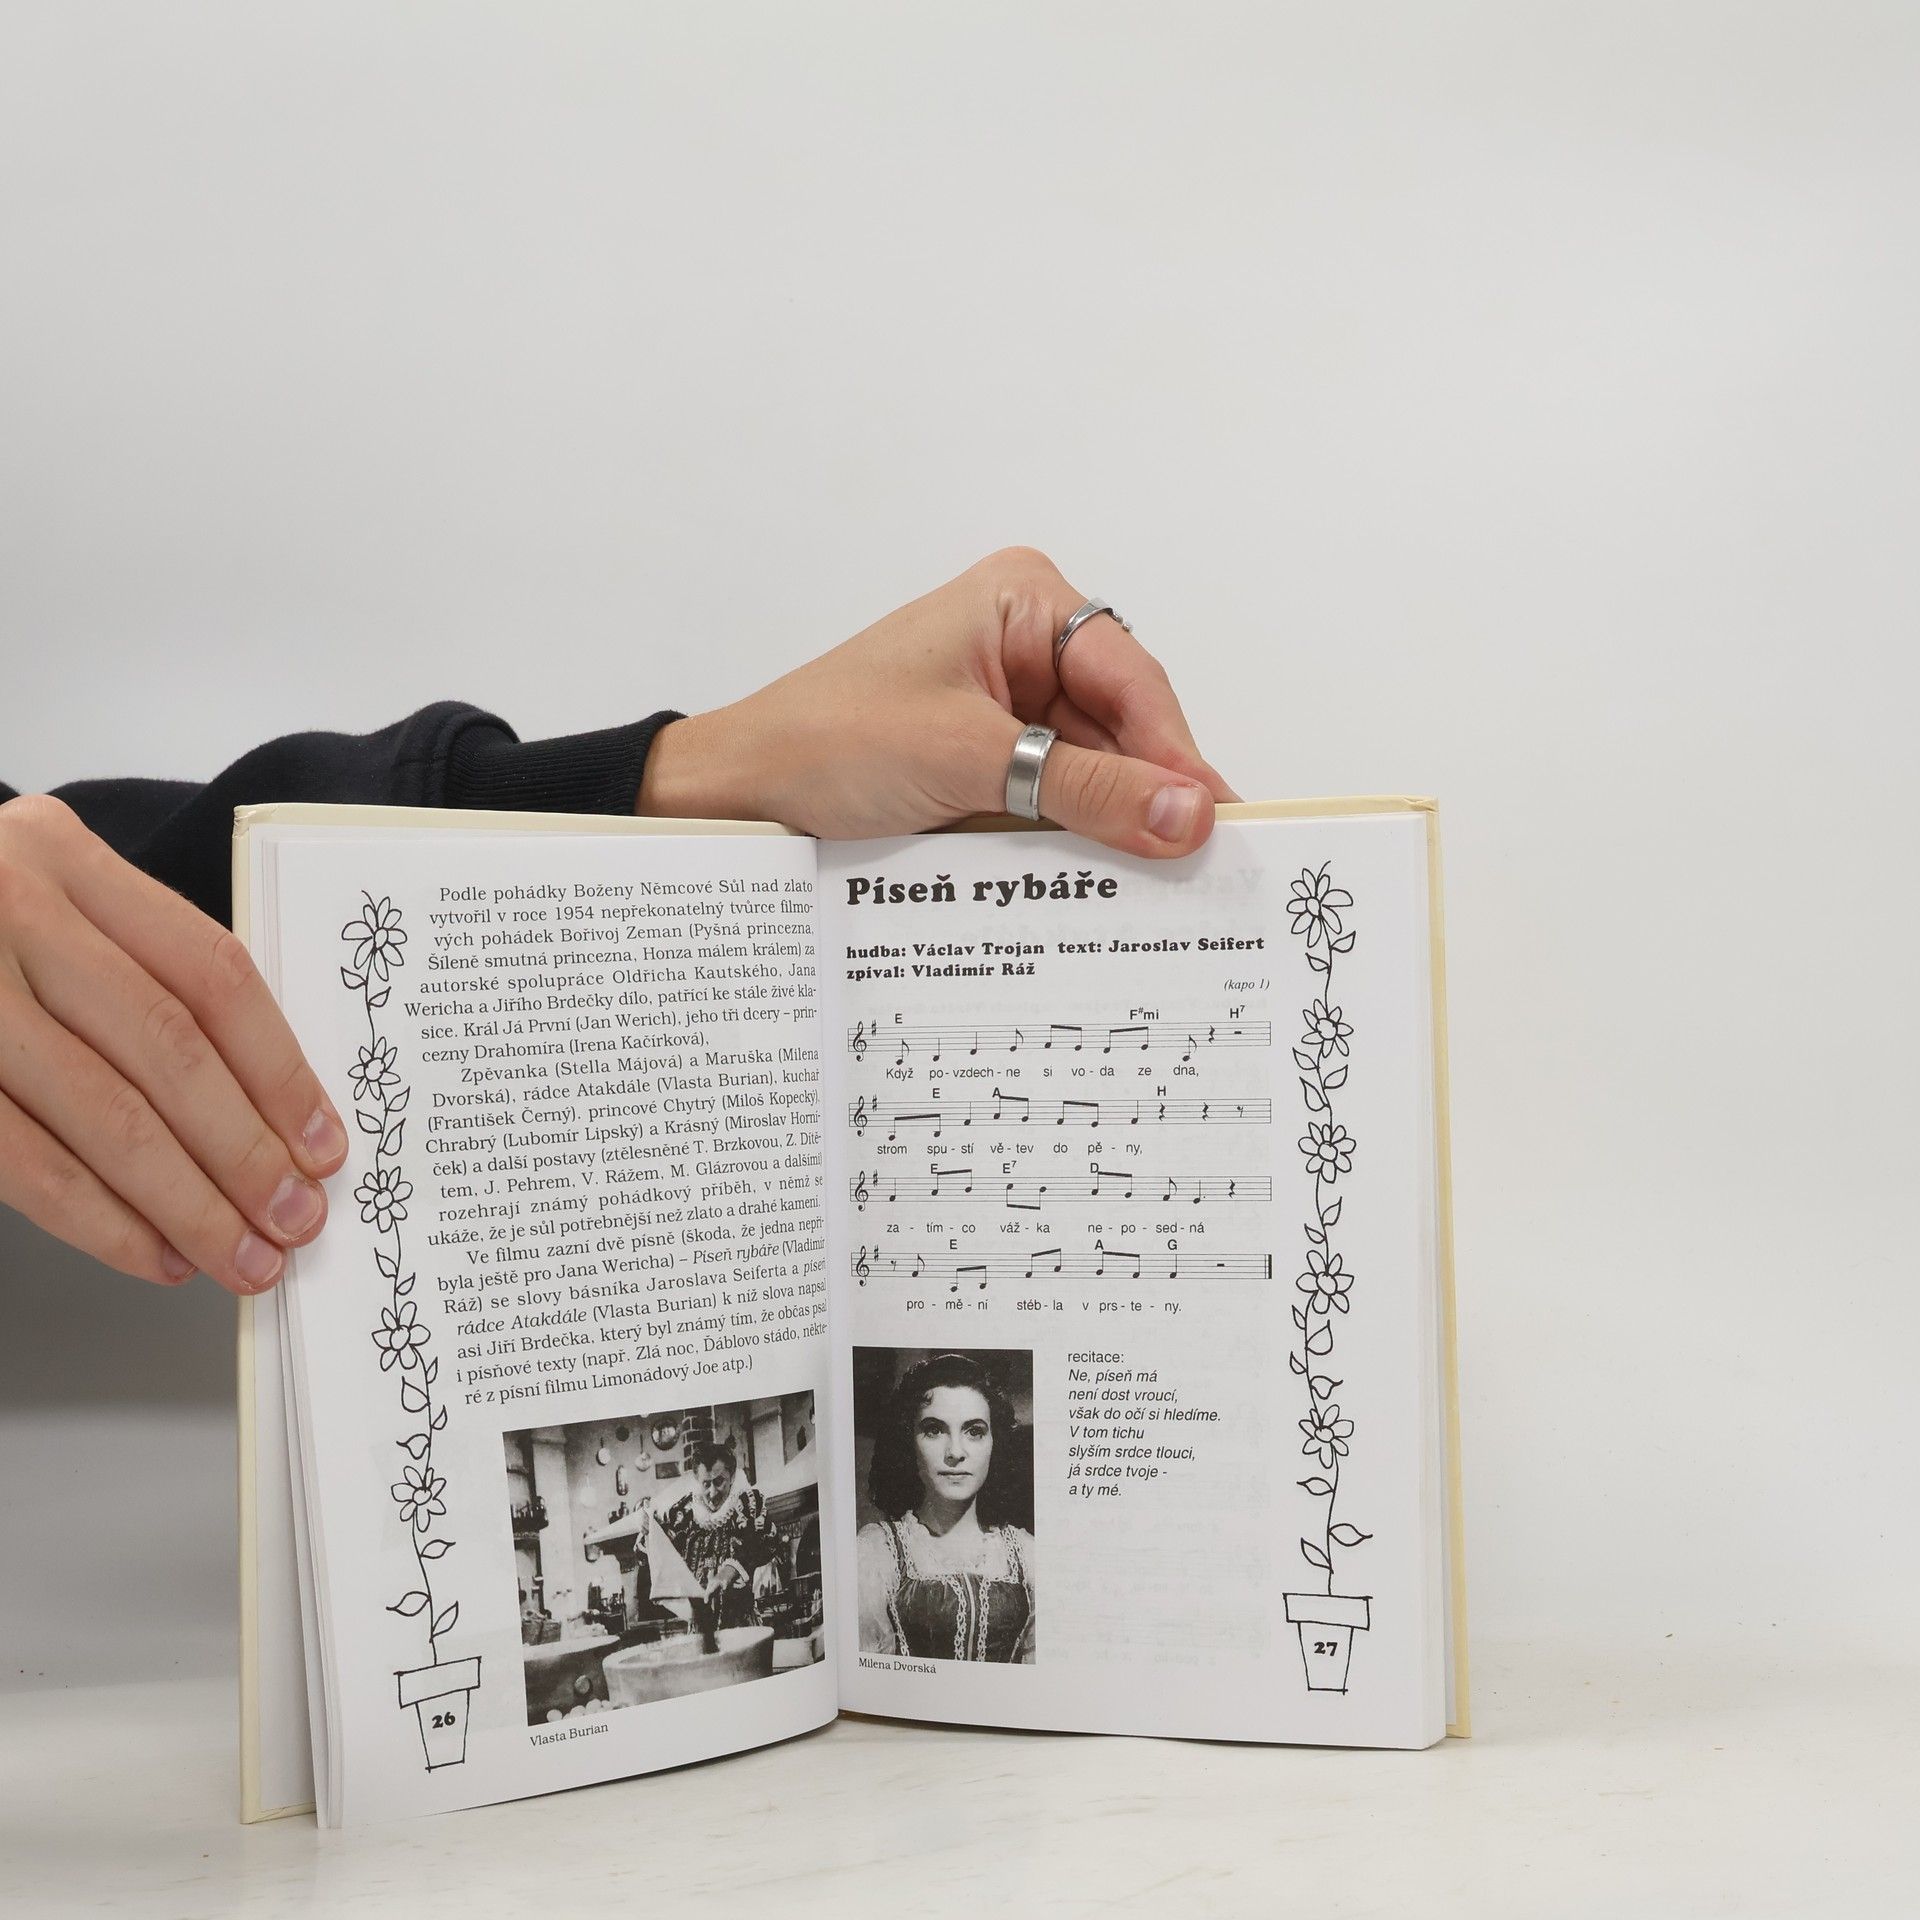 Podle pohádky Boženy Němcové Sůl nad zlato
vytvořil v roce 1954 nepřekonatelný tvůrce filmo-
vých pohádek Bořivoj Zeman (Pyšná princezna,
Šíleně smutná princezna, Honza málem králem) za
autorské spolupráce Oldřicha Kautského, Jana
Wericha a Jiřího Brdečky dílo, patřící ke stále živé kla-
sice. Král Já První (Jan Werich), jeho tři dcery – prin-
cezny Drahomíra (Irena Kačírková),
Zpěvanka (Stella Májová) a Maruška (Milena
Dvorská), rádce Atakdále (Vlasta Burian), kuchař
(František Černý), princové Chytrý (Miloš Kopecký),
Chrabrý (Lubomír Lipský) a Krásný (Miroslav Horní-
ček) a další postavy (ztělesněné T. Brzkovou, Z. Dítě-
tem, J. Pehrem, V. Rážem, M. Glázrovou a dalšími)
rozehrají známý pohádkový příběh, v němž se
ukáže, že je sůl potřebnější než zlato a drahé kameni.
Ve filmu zazní dvě písně (škoda, že jedna nepři-
byla ještě pro Jana Wericha) – Píseň rybáře (Vladimír
Ráž) se slovy básníka Jaroslava Seiferta a píseň
rádce Atakdále (Vlasta Burian) k níž slova napsal
asi Jiří Brdečka, který byl známý tím, že občas psal
i písňové texty (např. Zlá noc, Ďáblovo stádo, někte-
ré z písní filmu Limonádový Joe atp.)
Vlasta Burian
26
Píseň rybáře
hudba: Václav Trojan text: Jaroslav Seifert
zpíval: Vladimír Ráž
(kapo 1)
E F#mi H7
Když po - vzdech - ne si vo - da ze dna,
E A H
strom spu - stí vě - tev do pě - ny,
E E7 D
za - tím - co váž - ka ne - po - sed - ná
E A G
pro - mě - ní stéb - la v prs - te - ny.
recitace:
Ne, píseň má
není dost vroucí,
však do očí si hledíme.
V tom tichu
slyším srdce tlouci,
já srdce tvoje -
a ty mé.
Milena Dvorská
27